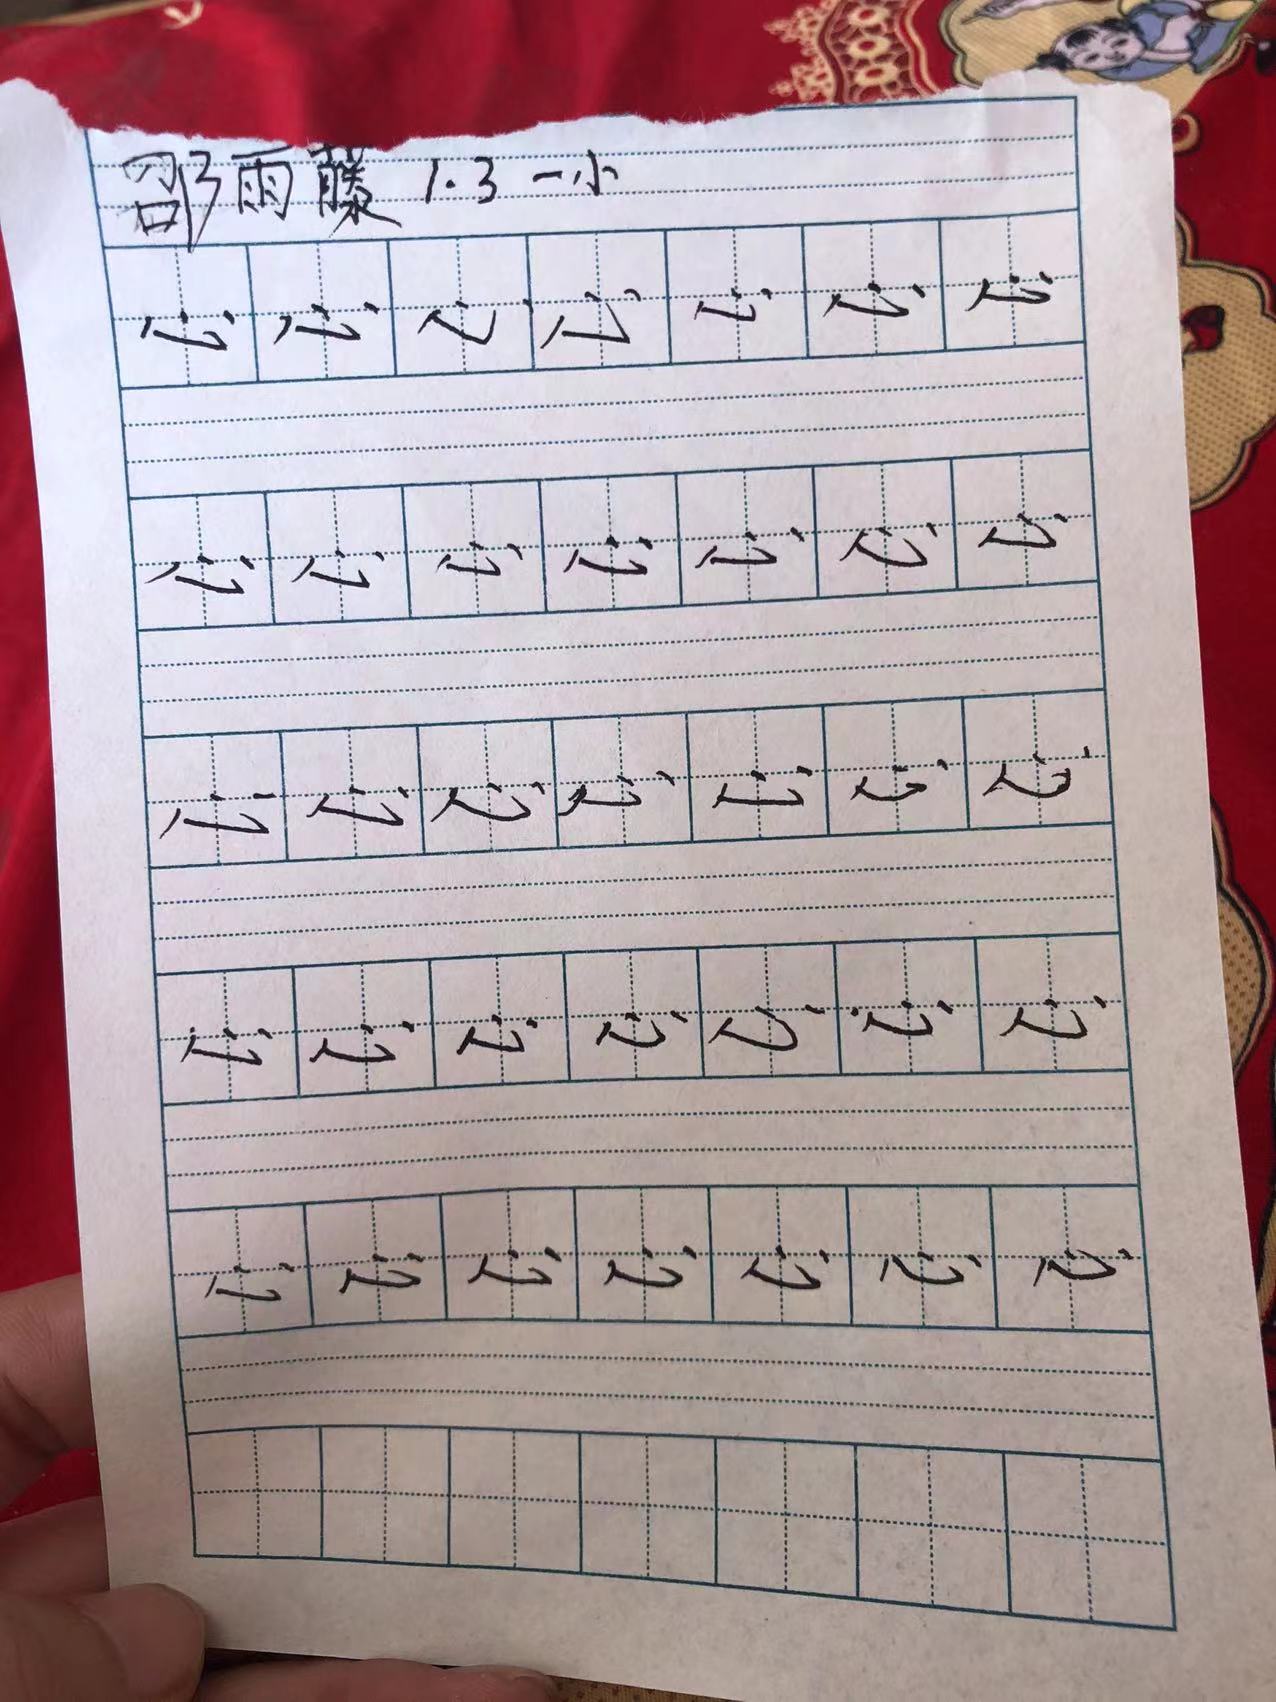 邵雨藤 1.3 一小
心心心心心心心
心心心心心心心
心心心心心心心
心心心心心心心
心心心心心心心